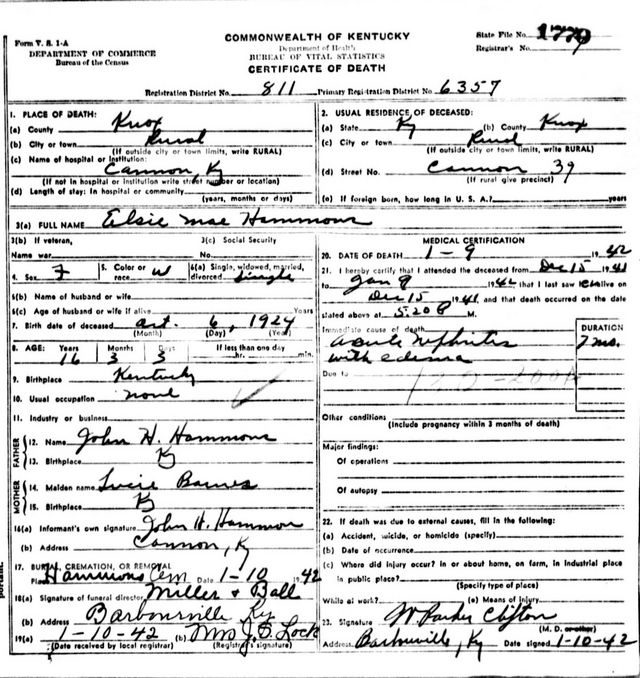 Form V. S. 1-A
DEPARTMENT OF COMMERCE
Bureau of the Census
COMMONWEALTH OF KENTUCKY
Department of Health
BUREAU OF VITAL STATISTICS
CERTIFICATE OF DEATH
State File No. 1779
Registrar's No.
Registration District No. 811 Primary Registration District No. 6357
1. PLACE OF DEATH:
(a) County Knox
(b) City or town Rural
(If outside city or town limits, write RURAL)
(c) Name of hospital or institution:
Cannon, Ky
(If not in hospital or institution write street number or location)
(d) Length of stay: In hospital or community
(years, months or days)
2. USUAL RESIDENCE OF DECEASED:
(a) State Ky (b) County Knox
(c) City or town Rural
(If outside city or town limits, write RURAL)
(d) Street No. Cannon 39
(If rural give precinct)
(e) If foreign born, how long in U. S. A.? years
3(a) FULL NAME Elsie Mae Hammons
3(b) If veteran, 3(c) Social Security
Name war No.
4. Sex F 5. Color or race w 6(a) Single, widowed, married, divorced Single
6(b) Name of husband or wife
6(c) Age of husband or wife if alive Years
7. Birth date of deceased Oct. 6, 1924
(Month) (Day) (Year)
8. AGE: Years Months Days If less than one day
16 3 3 hr. min.
9. Birthplace Kentucky
10. Usual occupation none
11. Industry or business
FATHER
12. Name John H. Hammons
13. Birthplace Ky
MOTHER
14. Maiden name Lucie Barnes
15. Birthplace Ky
16(a) Informant's own signature John H. Hammon
(b) Address Cannon, Ky
17. BURIAL, CREMATION, OR REMOVAL
Place Hammons Cem Date 1-10 1942
18(a) Signature of funeral director Miller & Ball
(b) Address Barbourville Ky
19(a) 1-10-42 (b) Mrs J. B. Lock
(Date received by local registrar) (Registrar's signature)
MEDICAL CERTIFICATION
20. DATE OF DEATH 1-9 1942
21. I hereby certify that I attended the deceased from Dec 15 1941
to Jan 9 1942 that I last saw alive on
Dec 15 1941, and that death occurred on the date
stated above at 5:20 M.
Immediate cause of death DURATION
acute Nephritis 7 mo.
with edema
Due to
Other conditions
(Include pregnancy within 3 months of death)
Major findings:
Of operations
Of autopsy
22. If death was due to external causes, fill in the following:
(a) Accident, suicide, or homicide (specify)
(b) Date of occurrence
(c) Where did injury occur? in or about home, on farm, in industrial place
in public place?
(Specify type of place)
While at work? (e) Means of injury
23. Signature W. Parker Clifton
(M. D. or other)
Address Barbourville, Ky Date signed 1-10-42